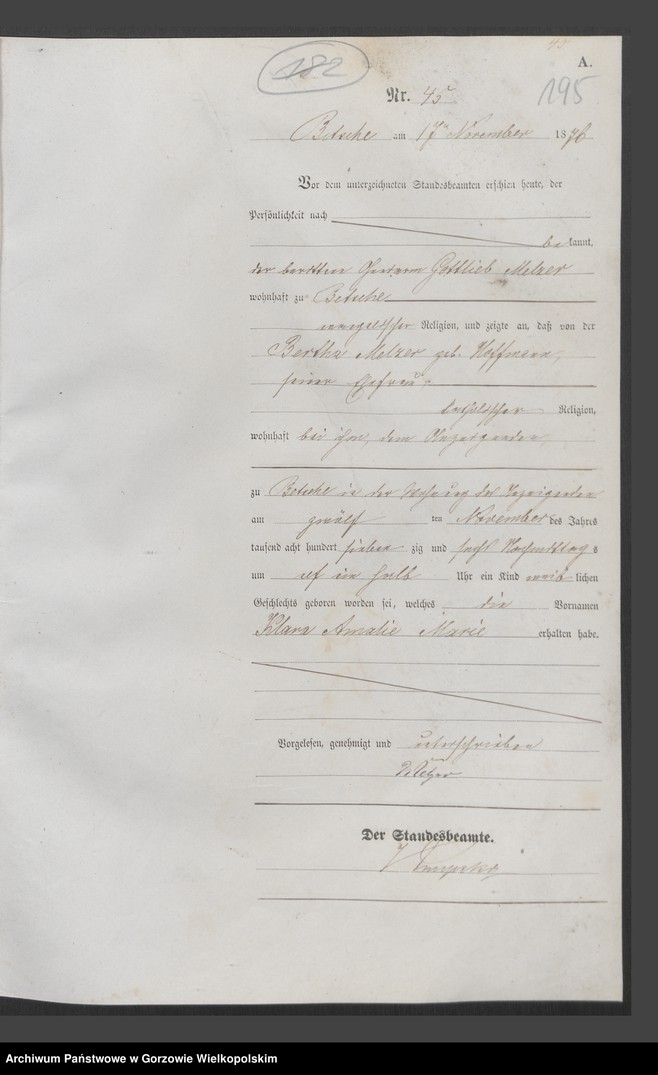 182
A.
Nr. 45
195
Betsche am 17ten November 1876
Vor dem unterzeichneten Standesbeamten erschien heute, der
Persönlichkeit nach
bekannt,
der Gottlieb Melzer
wohnhaft zu Betsche
evangelischer Religion, und zeigte an, daß von der
Bertha Melzer geb. Hoffmann,
seiner Ehefrau,
katholischer Religion,
wohnhaft bei ihm, dem Anzeigenden,
zu Betsche in der Wohnung des Anzeigenden
am zwölf ten November des Jahres
tausend acht hundert sieben zig und sechs Nachmittag s
um elf ein halb Uhr ein Kind weib lichen
Geschlechts geboren worden sei, welches die Vornamen
Klara Amalie Marie erhalten habe.
Vorgelesen, genehmigt und unterschrieben
Melzer
Der Standesbeamte.
Archiwum Państwowe w Gorzowie Wielkopolskim